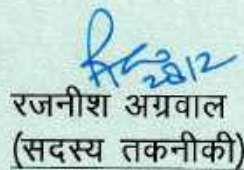 28/2
रजनीश अग्रवाल
(सदस्य तकनीकी)